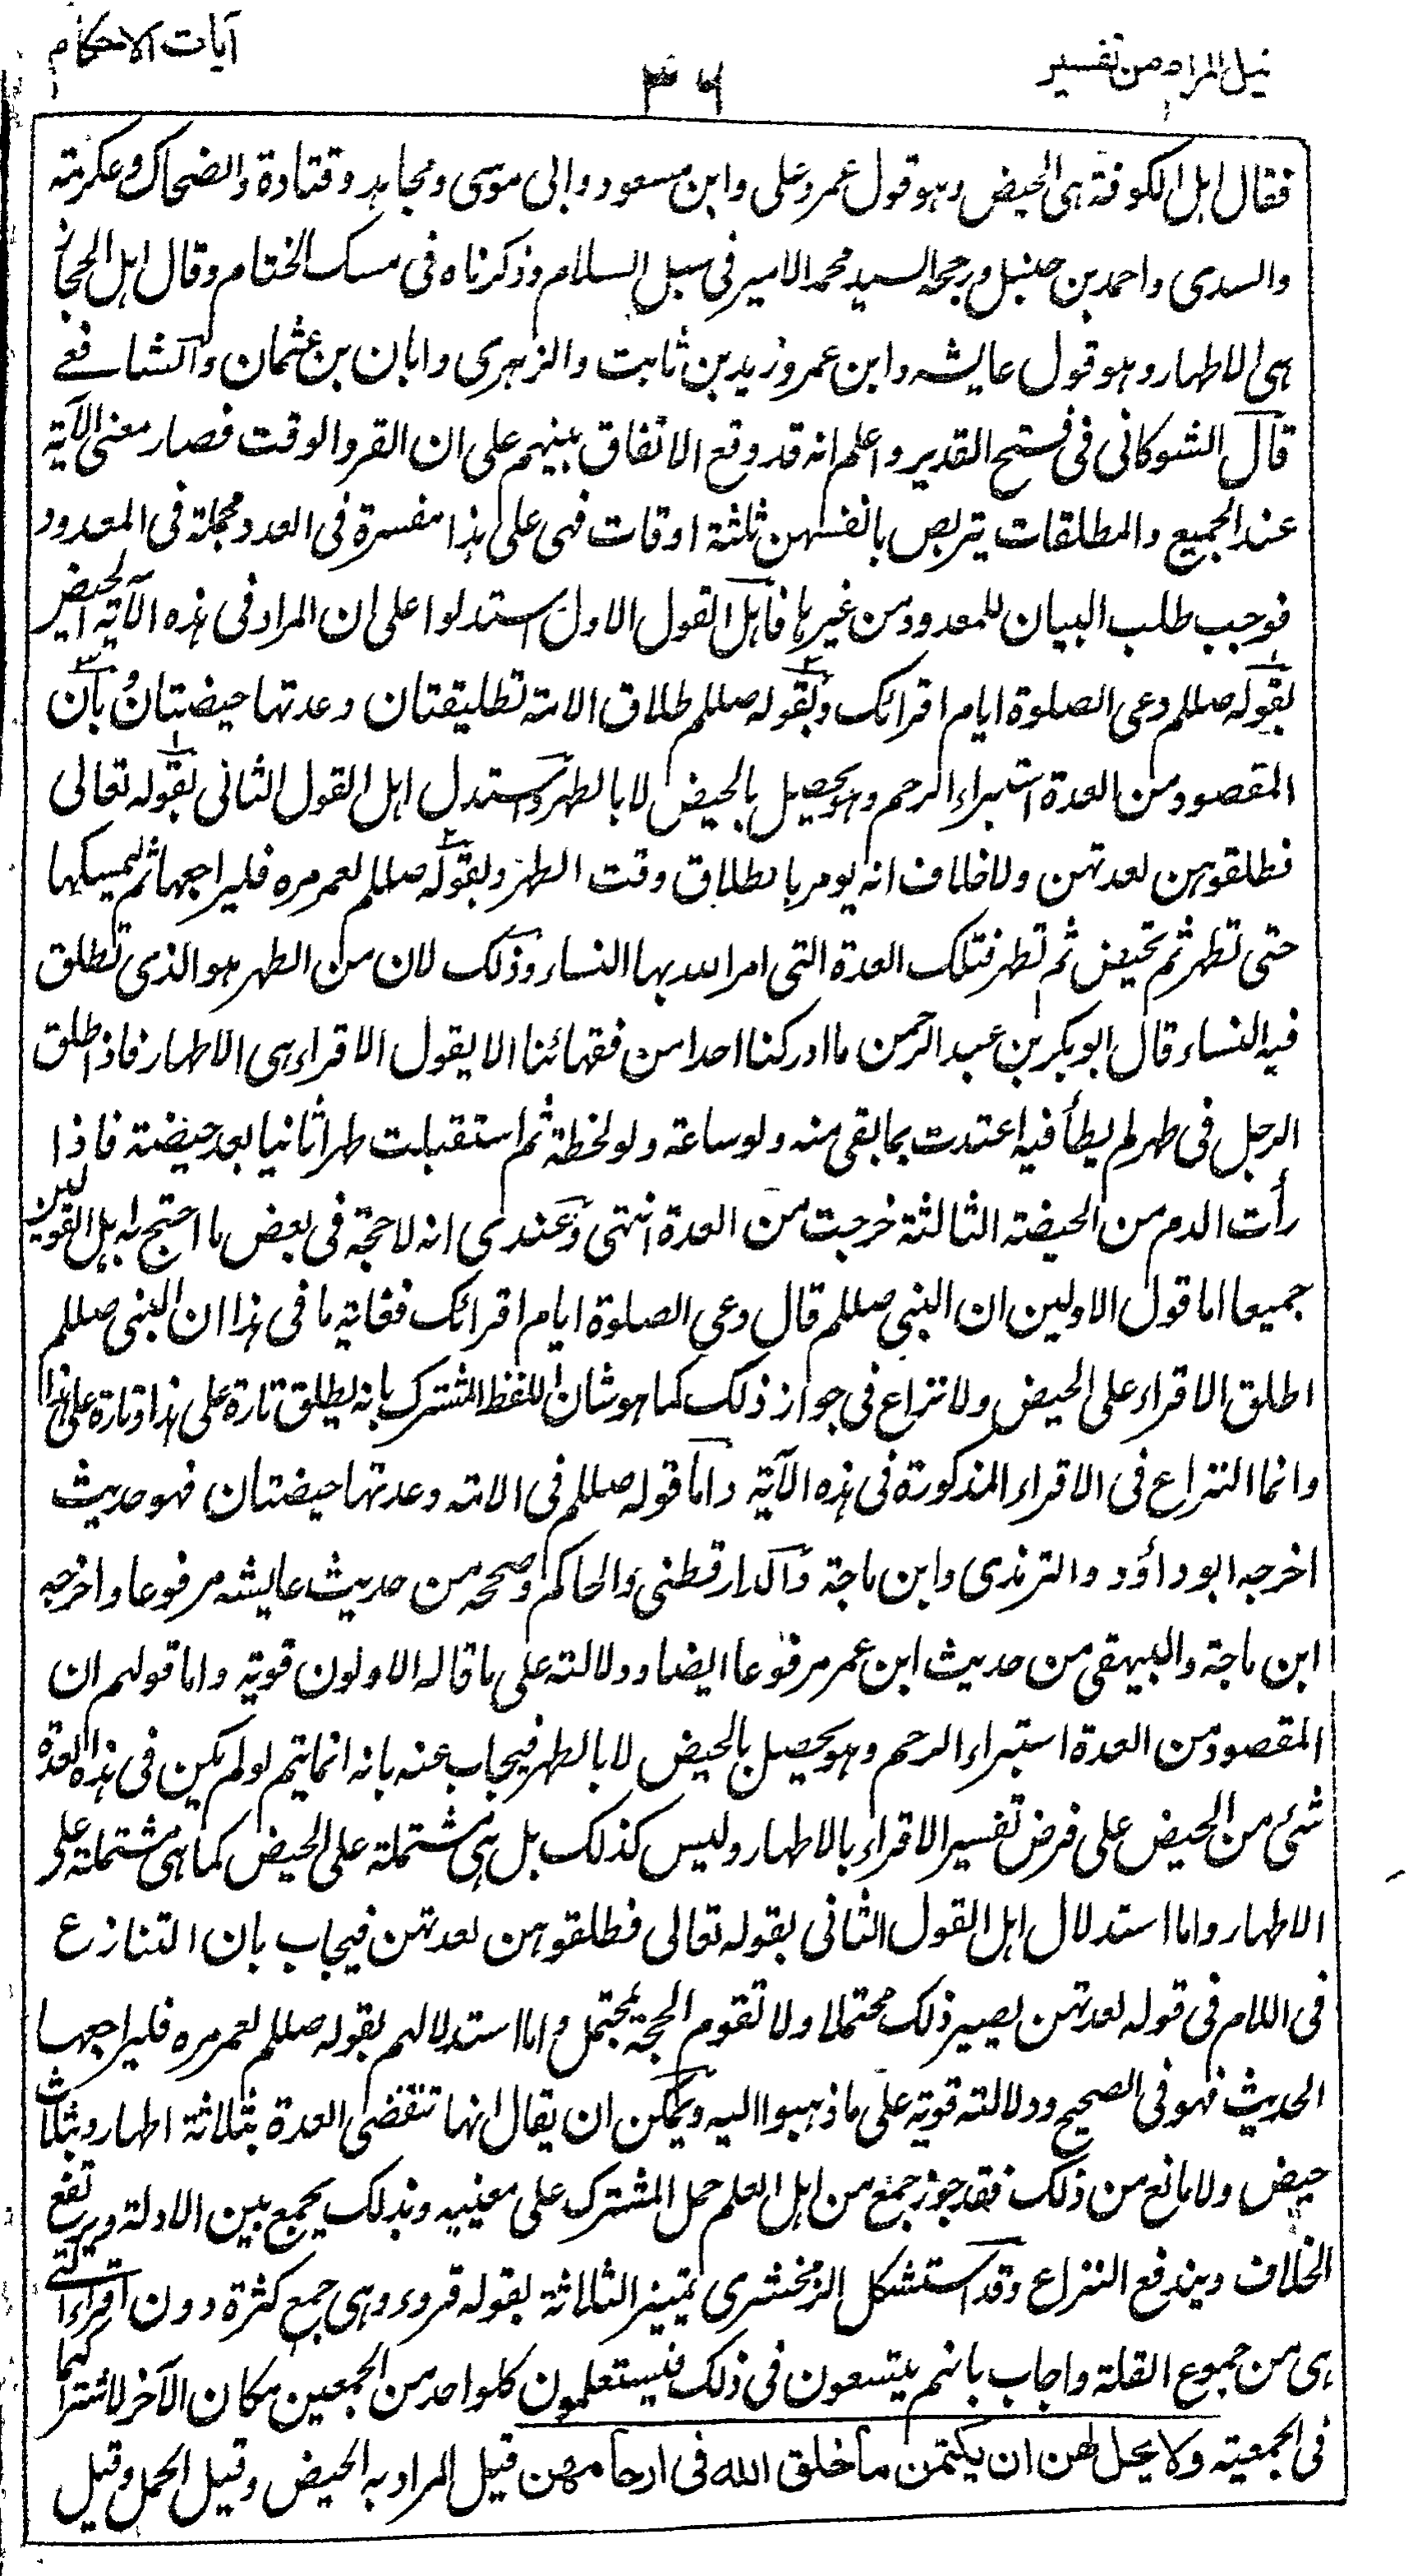 نيل المرام من تفسير
٣٦
آيات الاحكام
فقال اهل الكوفة هى الحيض وهو قول عمر وعلى وابن مسعود وابى موسى ومجاهد وقتادة والضحاك وعكرمة
والسدى واحمد بن حنبل ورجحه السيد محمد الامير فى سبل السلام وذكرناه فى مسك الختام وقال اهل الحجاز
هى الاطهار وهو قول عايشه وابن عمر وزيد بن ثابت والزهرى وابان بن عثمان والشافعے
قال الشوكانى فى فتح القدير واعلم انه قد وقع الاتفاق بينهم على ان القرء الوقت فصار معنى الآية
عند الجميع والمطلقات يتربصن بانفسهن ثلثة اوقات فهى على هذا مفسرة فى العدد مجملة فى المعدود
فوجب طلب البيان للمعدود من غيرها فاهل القول الاول استدلوا على ان المراد فى هذه الآية الحيض
بقوله صللم دعى الصلوة ايام اقرائك وبقوله صللم طلاق الامة تطليقتان وعدتها حيضتان وبان
المقصود من العدة استبراء الرحم وهو يحصل بالحيض لا بالطهر واستدل اهل القول الثانى بقوله تعالى
فطلقوهن لعدتهن ولا خلاف انه يومر بالطلاق وقت الطهر وبقوله صللم لعمر مره فليراجعها ثم ليمسكها
حتى تطهر ثم تحيض ثم تطهر فتلك العدة التى امر الله بها النساء وذلك لان من الطهر هو الذى تطلق
فيه النساء قال ابو بكر بن عبد الرحمن ما ادركنا احدا من فقهائنا الا يقول الاقراء هى الاطهار فاذا طلق
الرجل فى طهر لم يطأ فيه اعتدت بما بقى منه ولو ساعة ولو لحظة ثم استقبلت طهرا ثانيا بعد حيضة فاذا
رأت الدم من الحيضة الثالثة خرجت من العدة انتهى وعندى انه لا حجة فى بعض ما احتج به اهل القولين
جميعا اما قول الاولين ان النبى صللم قال دعى الصلوة ايام اقرائك فغاية ما فى هذا ان النبى صللم
اطلق الاقراء على الحيض ولا نزاع فى جواز ذلك كما هو شان اللفظ المشترك بانه يطلق تارة على هذا وتارة على هذا
وانما النزاع فى الاقراء المذكورة فى هذه الآية واما قوله صللم فى الامة وعدتها حيضتان فهو حديث
اخرجه ابو داؤد والترمذى وابن ماجة والدارقطنى والحاكم وصححه من حديث عايشه مرفوعا واخرجه
ابن ماجة والبيهقى من حديث ابن عمر مرفوعا ايضا ودلالته على ما قاله الاولون قوية واما قولهم ان
المقصود من العدة استبراء الرحم وهو يحصل بالحيض لا بالطهر فيجاب عنه بانه انما يتم لو لم يكن فى هذه العدة
شئ من الحيض على فرض تفسير الاقراء بالاطهار وليس كذلك بل هى مشتملة على الحيض كما هى مشتملة على
الاطهار واما استدلال اهل القول الثانى بقوله تعالى فطلقوهن لعدتهن فيجاب بان التنازع
فى اللام فى قوله لعدتهن يصير ذلك محتملا ولا تقوم الحجة بمحتمل واما استدلالهم بقوله صللم لعمر مره فليراجعها
الحديث فهو فى الصحيح ودلالته قوية على ما ذهبوا اليه ويمكن ان يقال انها تنقضى العدة بثلاثة اطهار وبثلاث
حيض ولا مانع من ذلك فقد جوز جمع من اهل العلم حمل المشترك على معنييه وبذلك يجمع بين الادلة ويرتفع
الخلاف ويندفع النزاع وقد استشكل الزمخشرى تمييز الثلاثة بقوله قروء وهى جمع كثرة دون اقراء التے
هى من جموع القلة واجاب بانهم يتسعون فى ذلك فيستعملون كلواحد من الجمعين مكان الآخر لاشتراكهما
فى الجمعية ولا يحل لهن ان يكتمن ما خلق الله فى ارحامهن قيل المراد به الحيض وقيل الحمل وقيل